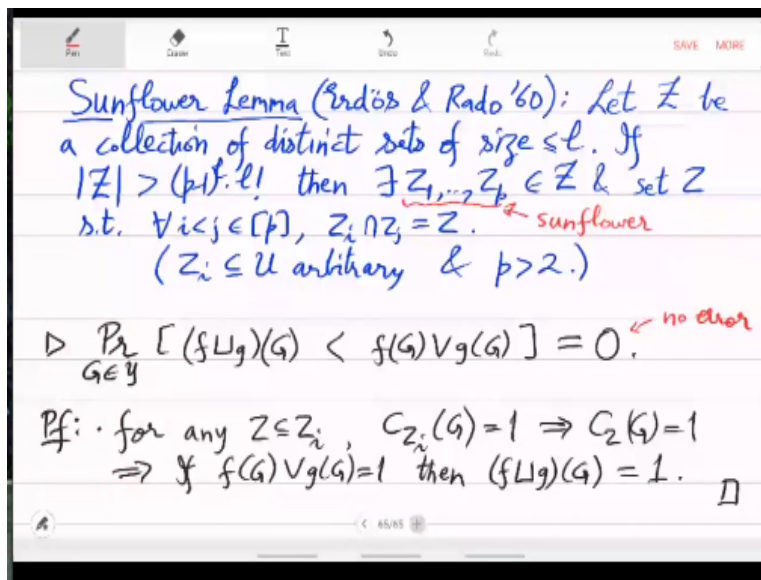 Pen Eraser Text Undo Redo SAVE MORE
Sunflower Lemma (Erdös & Rado '60): Let Z be
a collection of distinct sets of size ≤ℓ. If
|Z| > (p-1)^ℓ·ℓ! then ∃ Z₁,..,Z_p ∈ Z & set Z
s.t. ∀i<j∈[p], Z_i ∩ Z_j = Z. sunflower
(Z_i ⊆ U arbitrary & p>2.)
▷ Pr [(f⊔g)(G) < f(G)∨g(G)] = 0. no error
G∈Y
Pf: · for any Z⊆Z_i, C_{Z_i}(G)=1 ⇒ C_Z(G)=1
⇒ If f(G)∨g(G)=1 then (f⊔g)(G) = 1. □
< 65/65 +